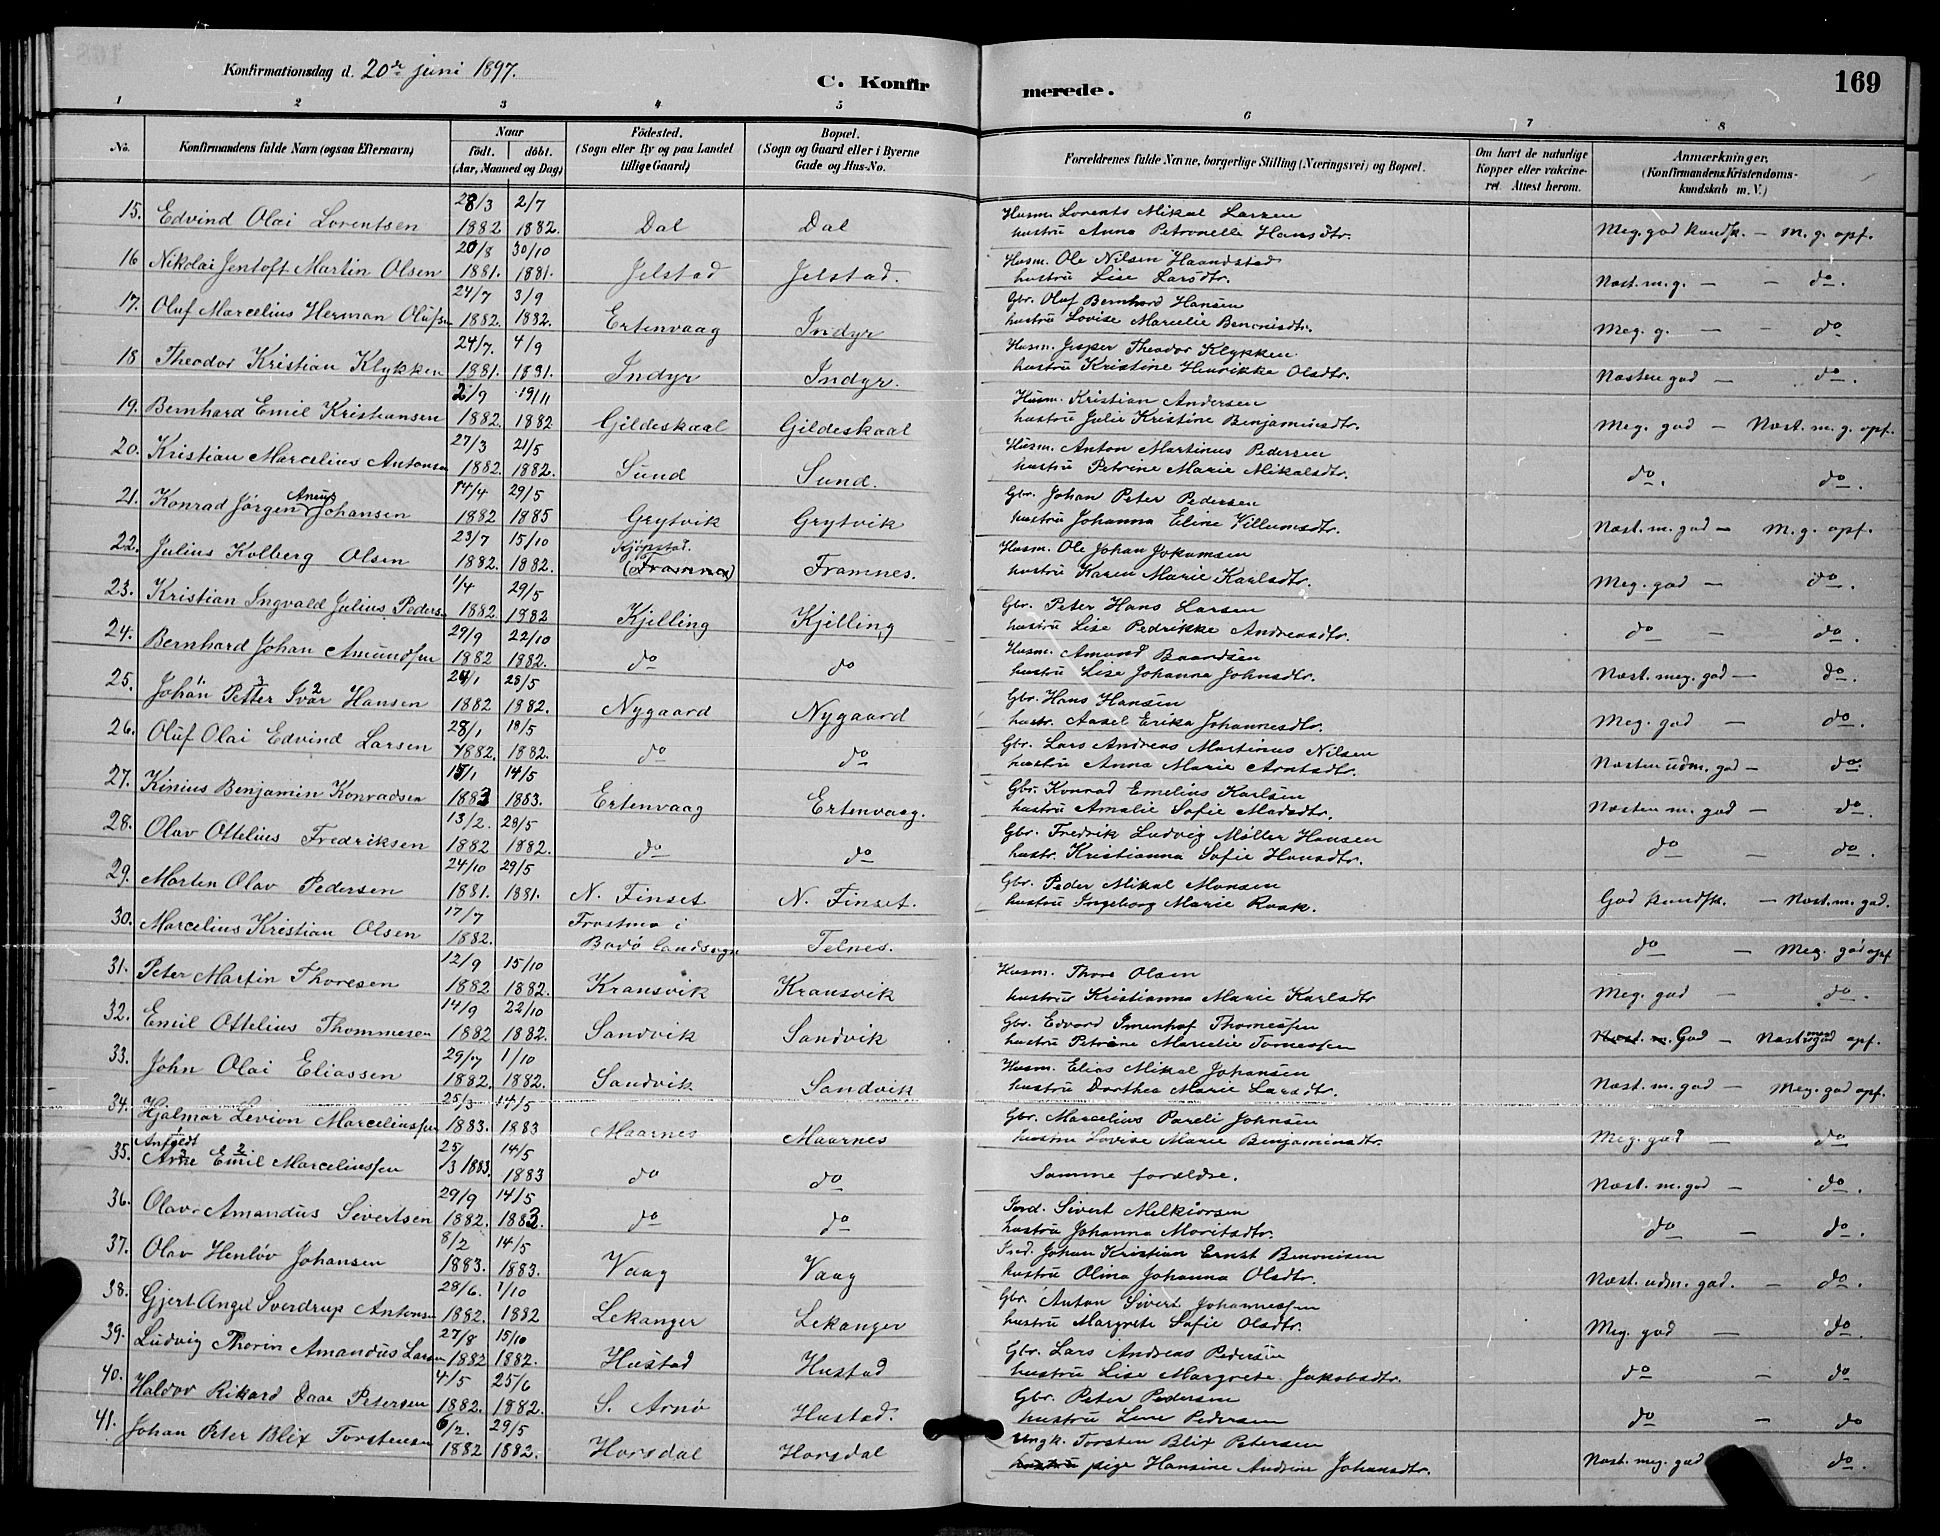 Konfirmationsdag d. 20de juni 1897.
C. Konfirmerede.
169
1 2 3 4 5 6 7 8
No. Konfirmandens fulde Navn (ogsaa Efternavn) Naar født. døbt. (Aar, Maaned og Dag) Fødested. (Sogn eller By og paa Landet tillige Gaard) Bopæl. (Sogn og Gaard eller i Byerne Gade og Hus-No. Forældrenes fulde Navne, borgerlige Stilling (Næringsvei) og Bopæl. Om havt de naturlige Kopper eller vakcineret Attest herom. Anmærkninger. (Konfirmandens Kristendomskundskab m. V.)
15. Edvind Olai Lorentsen 28/3 1882 2/7 1882. Dal Dal Husm. Lorents Mikal Larsen hustru Anna Petronelle Hansdtr. Meg. god kundsk. — m. g. opf.
16 Nikolai Jentoft Martin Olsen 20/8 1881. 30/10 1881. Jelstad Jelstad. Husm. Ole Nilsen Haandstad hustru Lise Larsdtr. Næst. m. g. — do.
17. Oluf Marcelius Herman Olufsen 24/7 1882. 3/9 1882. Ertenvaag Indyr Gbr. Oluf Bernhard Hansen hustru Lovise Marcelie Benonisdtr. Meg. g. — do
18 Theodor Kristian Klykken 24/7. 1881. 4/9 1881. Indyr Indyr. Husm. Jesper Theodor Klykken hustru Kristine Henrikke Olsdtr. Næsten god — do.
19. Bernhard Emil Kristiansen 2/9 1882. 19/11 1882 Gildeskaal Gildeskaal Husm. Kristian Andersen hustru Julie Kristine Benjaminsdtr. Meg. god — Næst. m. g. opf.
20. Kristian Marcelius Antonsen 27/3 1882. 21/5 1882. Sund Sund. Husm. Anton Martinus Pedersen hustru Petrine Marie Mikalsdtr. do. do.
21. Konrad Jørgen Aneus Johansen 14/4 1882 29/5 1885 Grytvik Grytvik Gbr. Johan Peter Pedersen hustru Johanna Eline Villumsdtr. Næst. m. god — M. g. opf.
22. Julius Kolberg Olsen 23/7 1882. 15/10 1882. Kjøpstad. (Framnes) Framnes. Husm. Ole Johan Jokumsen hustru Karen Marie Karlsdtr. Meg. god — do.
23. Kristian Ingvald Julius Pedersen 1/4 1882 29/5 1882 Kjelling Kjelling Gbr. Peter Hans Larsen hustru Lise Pedrikke Andreasdtr. do — do.
24. Bernhard Johan Amundsen 29/9 1882 22/10 1882. do do Husm. Amund Baardsen hustru Lise Johanna Johnsdtr. Næst. meg. god — do.
25. Johan 1 Petter 3 Ivar 2 Hansen 24/1 1882 28/5 1882. Nygaard Nygaard Gbr. Hans Hansen hustr. Aasel Erika Johannesdtr. Meg. god — do.
26. Oluf Olai Edvind Larsen 28/1 1882. 18/5 1882. do do Gbr. Lars Andreas Martinus Nilsen hustru Anna Marie Arntsdtr. Næsten udm. god — do.
27. Kinius Benjamin Konradsen 15/1 1883 14/5 1883. Ertenvaag Ertenvaag. Gbr. Konrad Emelius Karlsen hustru Amalie Sofie Madsdtr. Næsten m. god — do.
28. Olav Ottelius Fredriksen 13/2. 1882 28/5 1882. do do Gbr. Fredrik Ludvig Møller Hansen hustr. Kristianna Sofie Hansdtr. do — do.
29. Morten Olav Pedersen 24/10 1881. 29/5 1881. N. Finset N. Finset. Gbr. Peder Mikal Monsen hustru Ingeborg Marie Rask. God kundsk. — Næst. m. god.
30. Marcelius Kristian Olsen 17/7 1882. Frostmo i Bodø landsogn Telnes. do — Meg. god opf
31. Peter Martin Thoresen 12/9 1882 15/10 1882. Kransvik Kransvik Husm. Thore Olsen hustru Kristianna Marie Karlsdtr Meg. god — do.
32. Emil Ottelius Thommesen 14/9 1882 22/10 1882. Sandvik Sandvik Gbr. Edvard Imenhof Thomessen hustru Petrine Marcelie Tornessen Næst. m. God — Næst. meg. god opf.
33. John Olai Eliassen 29/7 1882. 1/10 1882. Sandvik Sandvik Husm. Elias Mikal Johansen hustru Dorthea Marie Larsdtr. Næst. m. god — Meg. god opf.
34. Hjalmar Levion Marceliussen 25/3 1883. 14/5 1883 Maarnes Maarnes Gbr. Marcelius Pareli Johnsen hustru Lovise Marie Benjaminsdtr. Meg. god — do
35. Anfeldt 1 Arne 3 Emil 2 Marceliussen 25/3 1883. 14/5 1883 do do Samme forældre. Næst. m. god — do.
36. Olav Amandus Sivertsen 29/9 1882. 14/5 1883. do do Ford. Sivert Melkiorsen hustru Johanna Moritsdtr. do — do.
37. Olav Henløv Johansen 8/2 1883. 14/5 1883. Vaag Vaag Ind. Johan Kristian Ernst Benonisen hustru Olina Johanna Olsdtr. Næst. udm. god. — do.
38. Gjert Angel Sverdrup Antonsen 28/6. 1882. 1/10 1882 Lekanger Lekanger Gbr. Anton Sivert Johannessen hustru Margrete Sofie Olsdtr. Meg. god — do.
39. Ludvig Thorin Amandus Larsen 27/8 1882 15/10 1882. Hustad Hustad Gbr. Lars Andreas Pedersen hustru Lise Margrete Jakobsdtr. do — do
40. Haldor Rikard Daae Petersen 4/5 1882. 25/6 1882. S. Arnø Hustad. Gbr. Peter Pedersen hustru Lene Pedersen do — do
41. Johan Peter Blix Torstensen 6/2. 1882 29/5 1882. Horsdal Horsdal Ungk. Torsten Blix Petersen hustru pige Hansine Andrine Johansdtr. Næst. meg. god do.